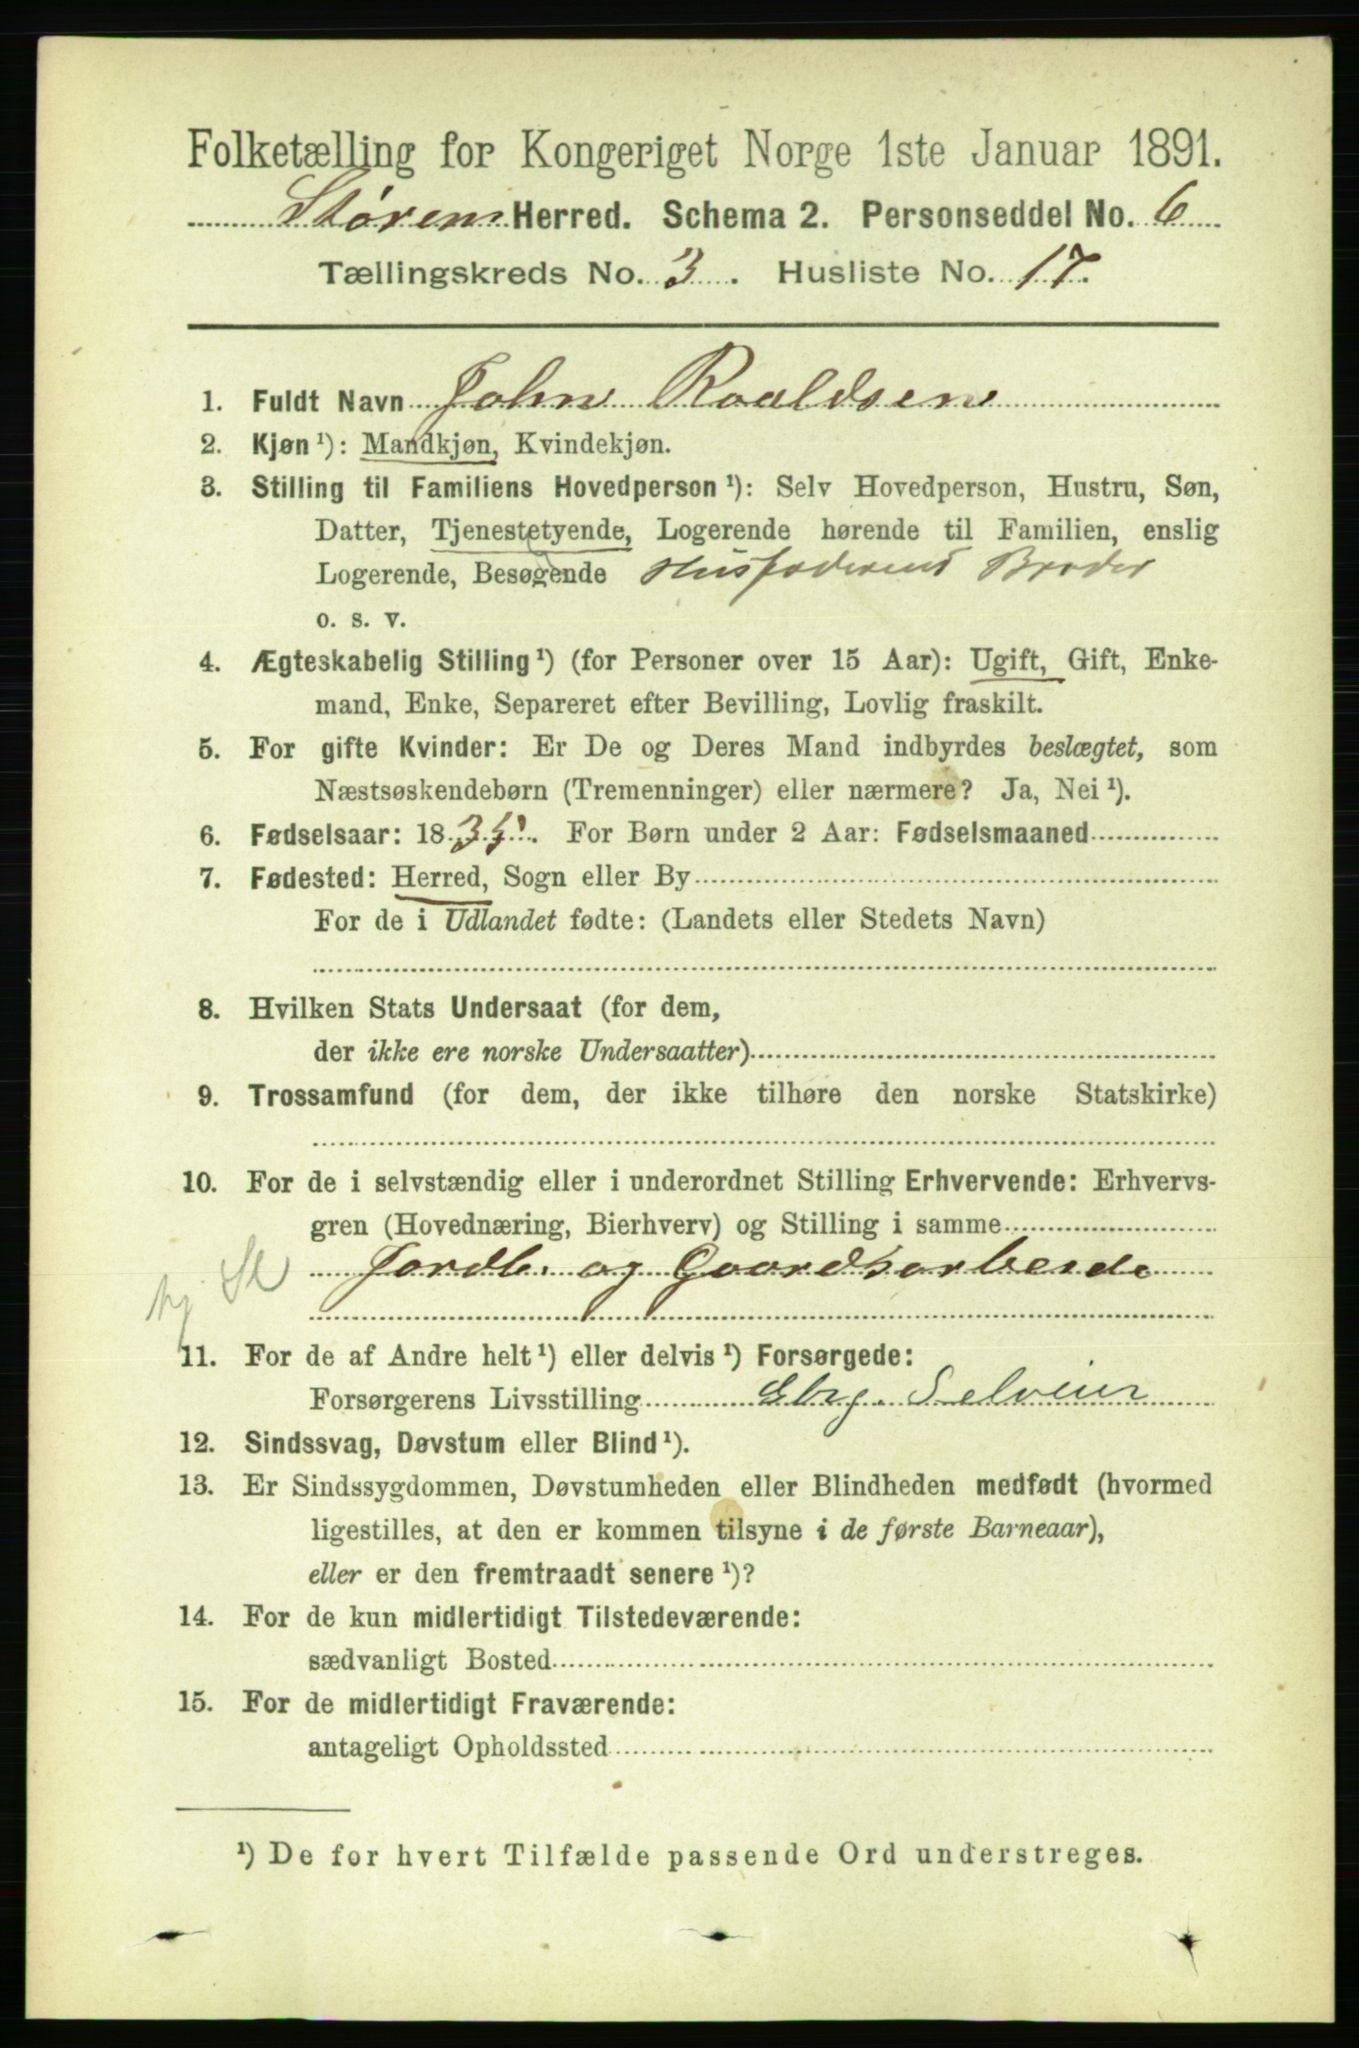 Folketælling for Kongeriget Norge 1ste Januar 1891.
Støren Herred. Schema 2. Personseddel No. 6
Tællingskreds No. 3. Husliste No. 17.
1. Fuldt Navn John Roaldsen
2. Kjøn ¹): Mandkjøn, Kvindekjøn.
3. Stilling til Familiens Hovedperson ¹): Selv Hovedperson, Hustru, Søn,
Datter, Tjenestetyende, Logerende hørende til Familien, enslig
Logerende, Besøgende Husfaderens Broder
o. s. v.
4. Ægteskabelig Stilling ¹) (for Personer over 15 Aar): Ugift, Gift, Enke-
mand, Enke, Separeret efter Bevilling, Lovlig fraskilt.
5. For gifte Kvinder: Er De og Deres Mand indbyrdes beslægtet, som
Næstsøskendebørn (Tremenninger) eller nærmere? Ja, Nei ¹).
6. Fødselsaar: 18 For Børn under 2 Aar: Fødselsmaaned
7. Fødested: Herred, Sogn eller By
For de i Udlandet fødte: (Landets eller Stedets Navn)
8. Hvilken Stats Undersaat (for dem,
der ikke ere norske Undersaatter)
9. Trossamfund (for dem, der ikke tilhøre den norske Statskirke)
10. For de i selvstændig eller i underordnet Stilling Erhvervende: Erhvervs-
gren (Hovednæring, Bierhverv) og Stilling i samme
Jordb. og Gaardsarbeide
11. For de af Andre helt ¹) eller delvis ¹) Forsørgede:
Forsørgerens Livsstilling Gbrg. Selveier
12. Sindssvag, Døvstum eller Blind ¹).
13. Er Sindssygdommen, Døvstumheden eller Blindheden medfødt (hvormed
ligestilles, at den er kommen tilsyne i de første Barneaar),
eller er den fremtraadt senere ¹)?
14. For de kun midlertidigt Tilstedeværende:
sædvanligt Bosted
15. For de midlertidigt Fraværende:
antageligt Opholdssted
¹) De for hvert Tilfælde passende Ord understreges.